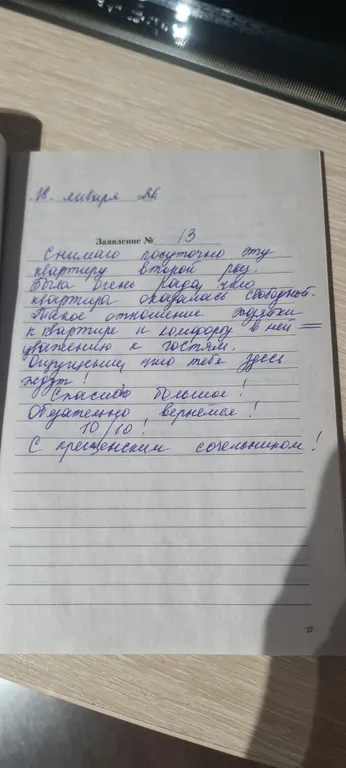 18. января 26
Заявление № 13
Снимаю посуточно эту
квартиру второй раз.
Была очень рада, что
квартира оказалась свободной.
Такое отношение хозяйки
к квартире и комфорту в ней =
уважению к гостям.
Ощущение, что тебя здесь
ждут!
Спасибо большое!
Обязательно вернемся!
10/10!
С крещенским сочельником!